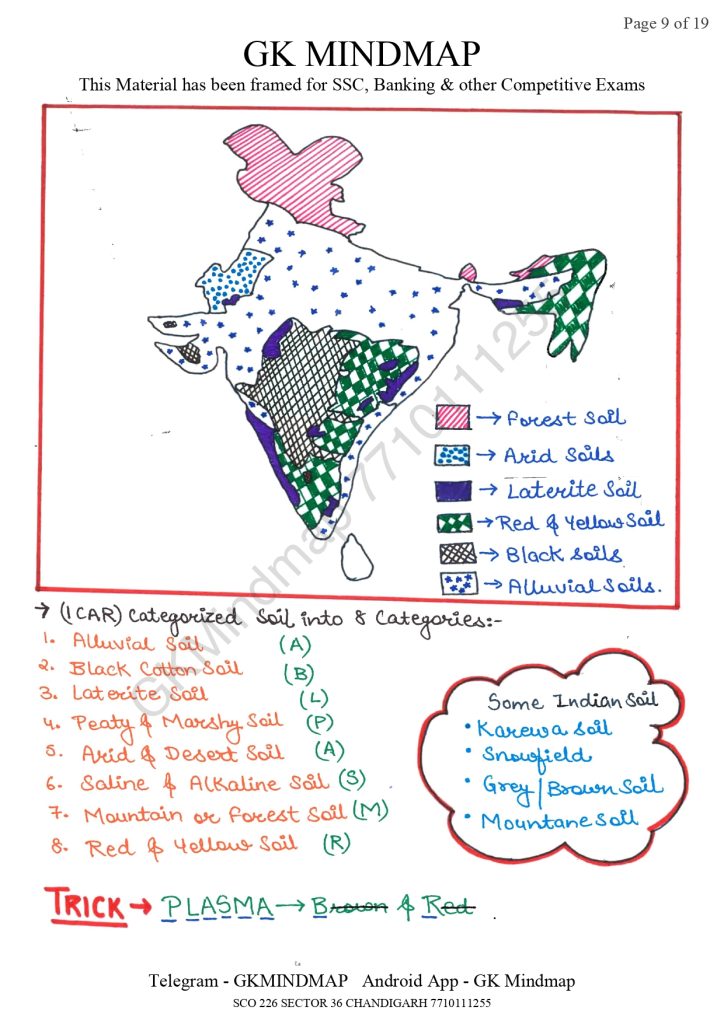 Page 9 of 19
GK MINDMAP
This Material has been framed for SSC, Banking & other Competitive Exams
→ Forest Soil
→ Arid Soils
→ Laterite Soil
→ Red & Yellow Soil
→ Black Soils
→ Alluvial Soils.
GKMindmap 7710111255
→ (ICAR) Categorized Soil into 8 Categories:-
1. Alluvial Soil (A)
2. Black Cotton Soil (B)
3. Laterite Soil (L)
4. Peaty & Marshy Soil (P)
5. Arid & Desert Soil (A)
6. Saline & Alkaline Soil (S)
7. Mountain or Forest Soil (M)
8. Red & Yellow Soil (R)
Some Indian Soil
• Karewa Soil
• Snowfield
• Grey/Brown Soil
• Mountane Soil
TRICK → PLASMA → Brown & Red.
Telegram - GKMINDMAP Android App - GK Mindmap
SCO 226 SECTOR 36 CHANDIGARH 7710111255